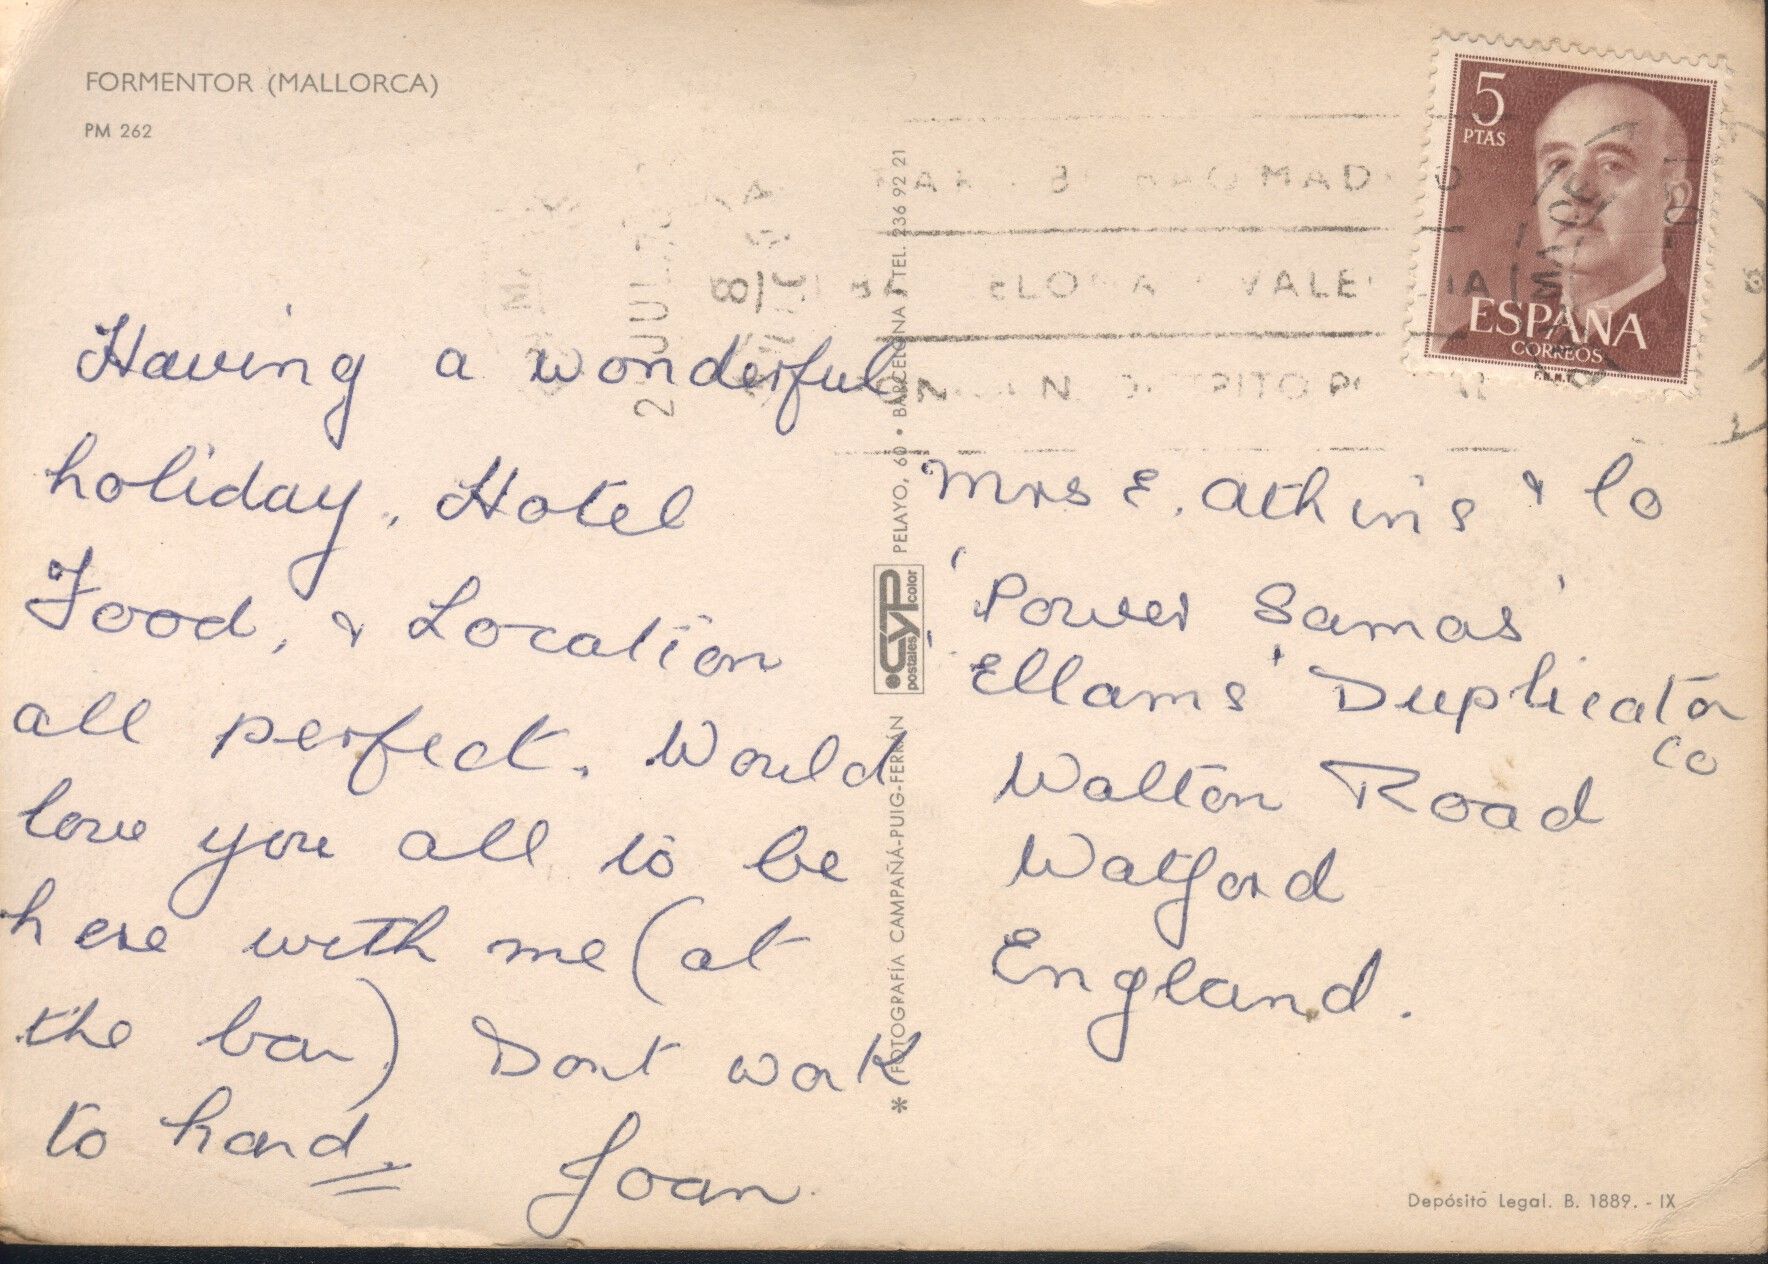 FORMENTOR (MALLORCA)
PM 262
Having a wonderful
holiday. Hotel
Food, & Location
all perfect. Would
love you all to be
here with me (at
the bar) Dont work
to hard.
Joan.
* FOTOGRAFÍA CAMPAÑÁ-PUIG-FERRÁN
CYP
postales color
PELAYO, 60 • BARCELONA / TEL. 236 92 21
5
PTAS
ESPAÑA
CORREOS
F.N.M.T.
MADRID
VALENCIA
JUL
Mrs E. Athins & Co
'Power Samas'
'Ellams' Duplicator
Co
Walton Road
Watford
England.
Depósito Legal. B. 1889. - IX